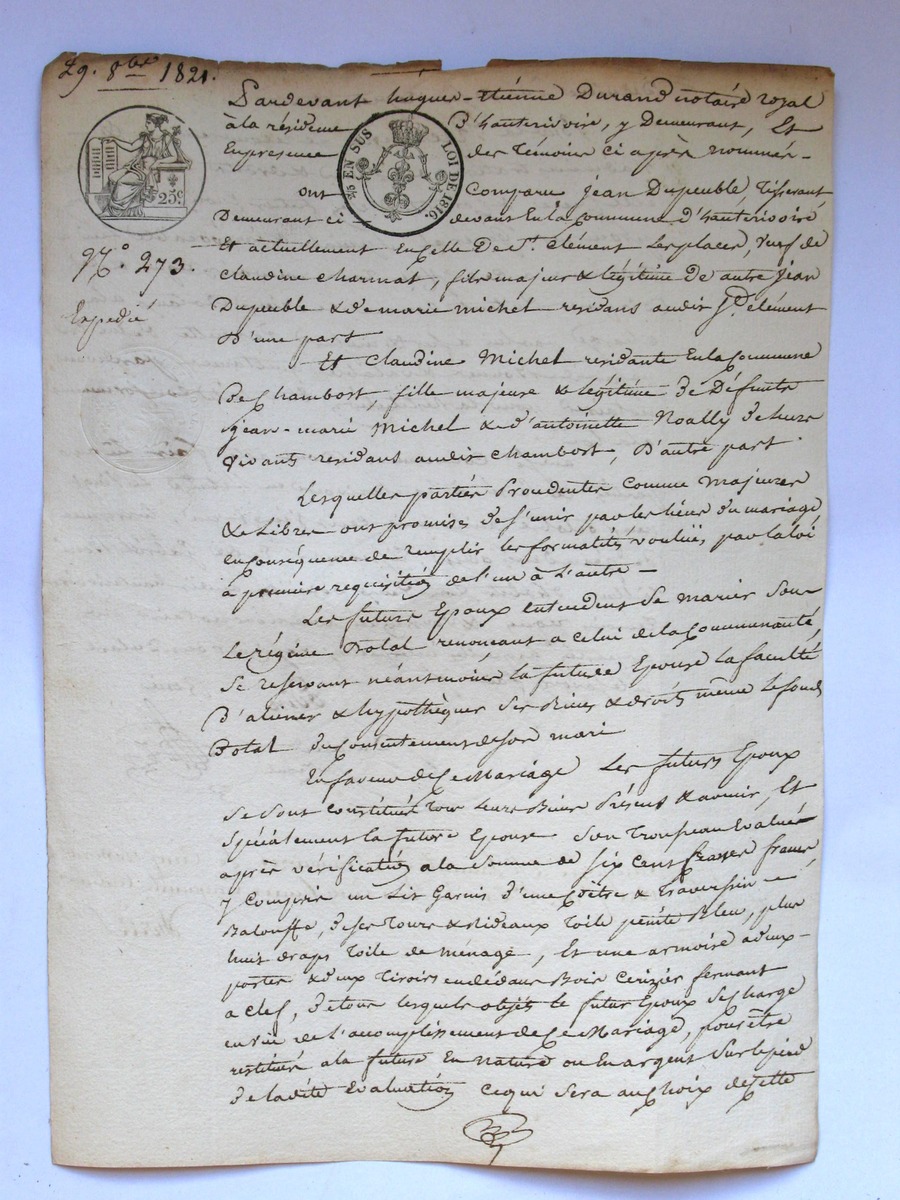 29. 8bre 1821.
25c
2/5 EN SUS LOI DE 1816.
N.º 273.
Expédié
Pardevant hugues-étienne Durand notaire royal
à la résidence D'hauterivoire, y Demeurant, Et
En presence des témoins ci après nommés-
ont Comparu Jean Dupeuble, tisserant
Demeurant ci devant En la Commune d'hauterivoire
Et actuellement En celle De St. clément les places, veuf de
Claudine Charmat, fils majeur & légitime De autre Jean
Dupeuble & de marie michel residans audit St. clément
D'une part
Et Claudine Michel residante En la Commune
De Chambost, fille majeure & légitime de Défunts
Jean-marie Michel & d'antoinette Noally de leurs
vivants residans audit Chambost, D'autre part.
Lesquelles parties Procedentes comme Majeures
& Libres ont promises de s'unir par les liens du mariage
en conséquence de remplir les formalités voulües par la loi
à première requisition de l'un à L'autre -
Les futurs Epoux entendent se marier sous
Le régime Dotal renonçant a celui de la Communauté,
se reservant néantmoins la future Epouse la faculté
D'aliéner & hypothèquer ses Biens & droits même le fonds
Dotal du Consentement de son mari
En faveur de Ce Mariage Les futurs Epoux
se sont constitués tous leurs Biens Présens & avenir, Et
spécialement la future Epouse son Troupeau Evalué
après vérification a la somme de six cent francs
y Compris un Lit Garnis d'une Coëtre & Traversin
Balouffe, de ses Tours & Rideaux Toile peinte Bleu, plus
huit draps Toile de ménage, Et une armoire a deux
portes & deux Tiroirs en dédans Bois Cerizier fermant
a clef, de tous lesquels objets le futur Epoux se charge
en vüe de l'accomplissement de Ce Mariage, pour être
restitués a la future En nature ou En argent sur le pied
de la dite Evaluation Ce qui sera au Choix de Cette